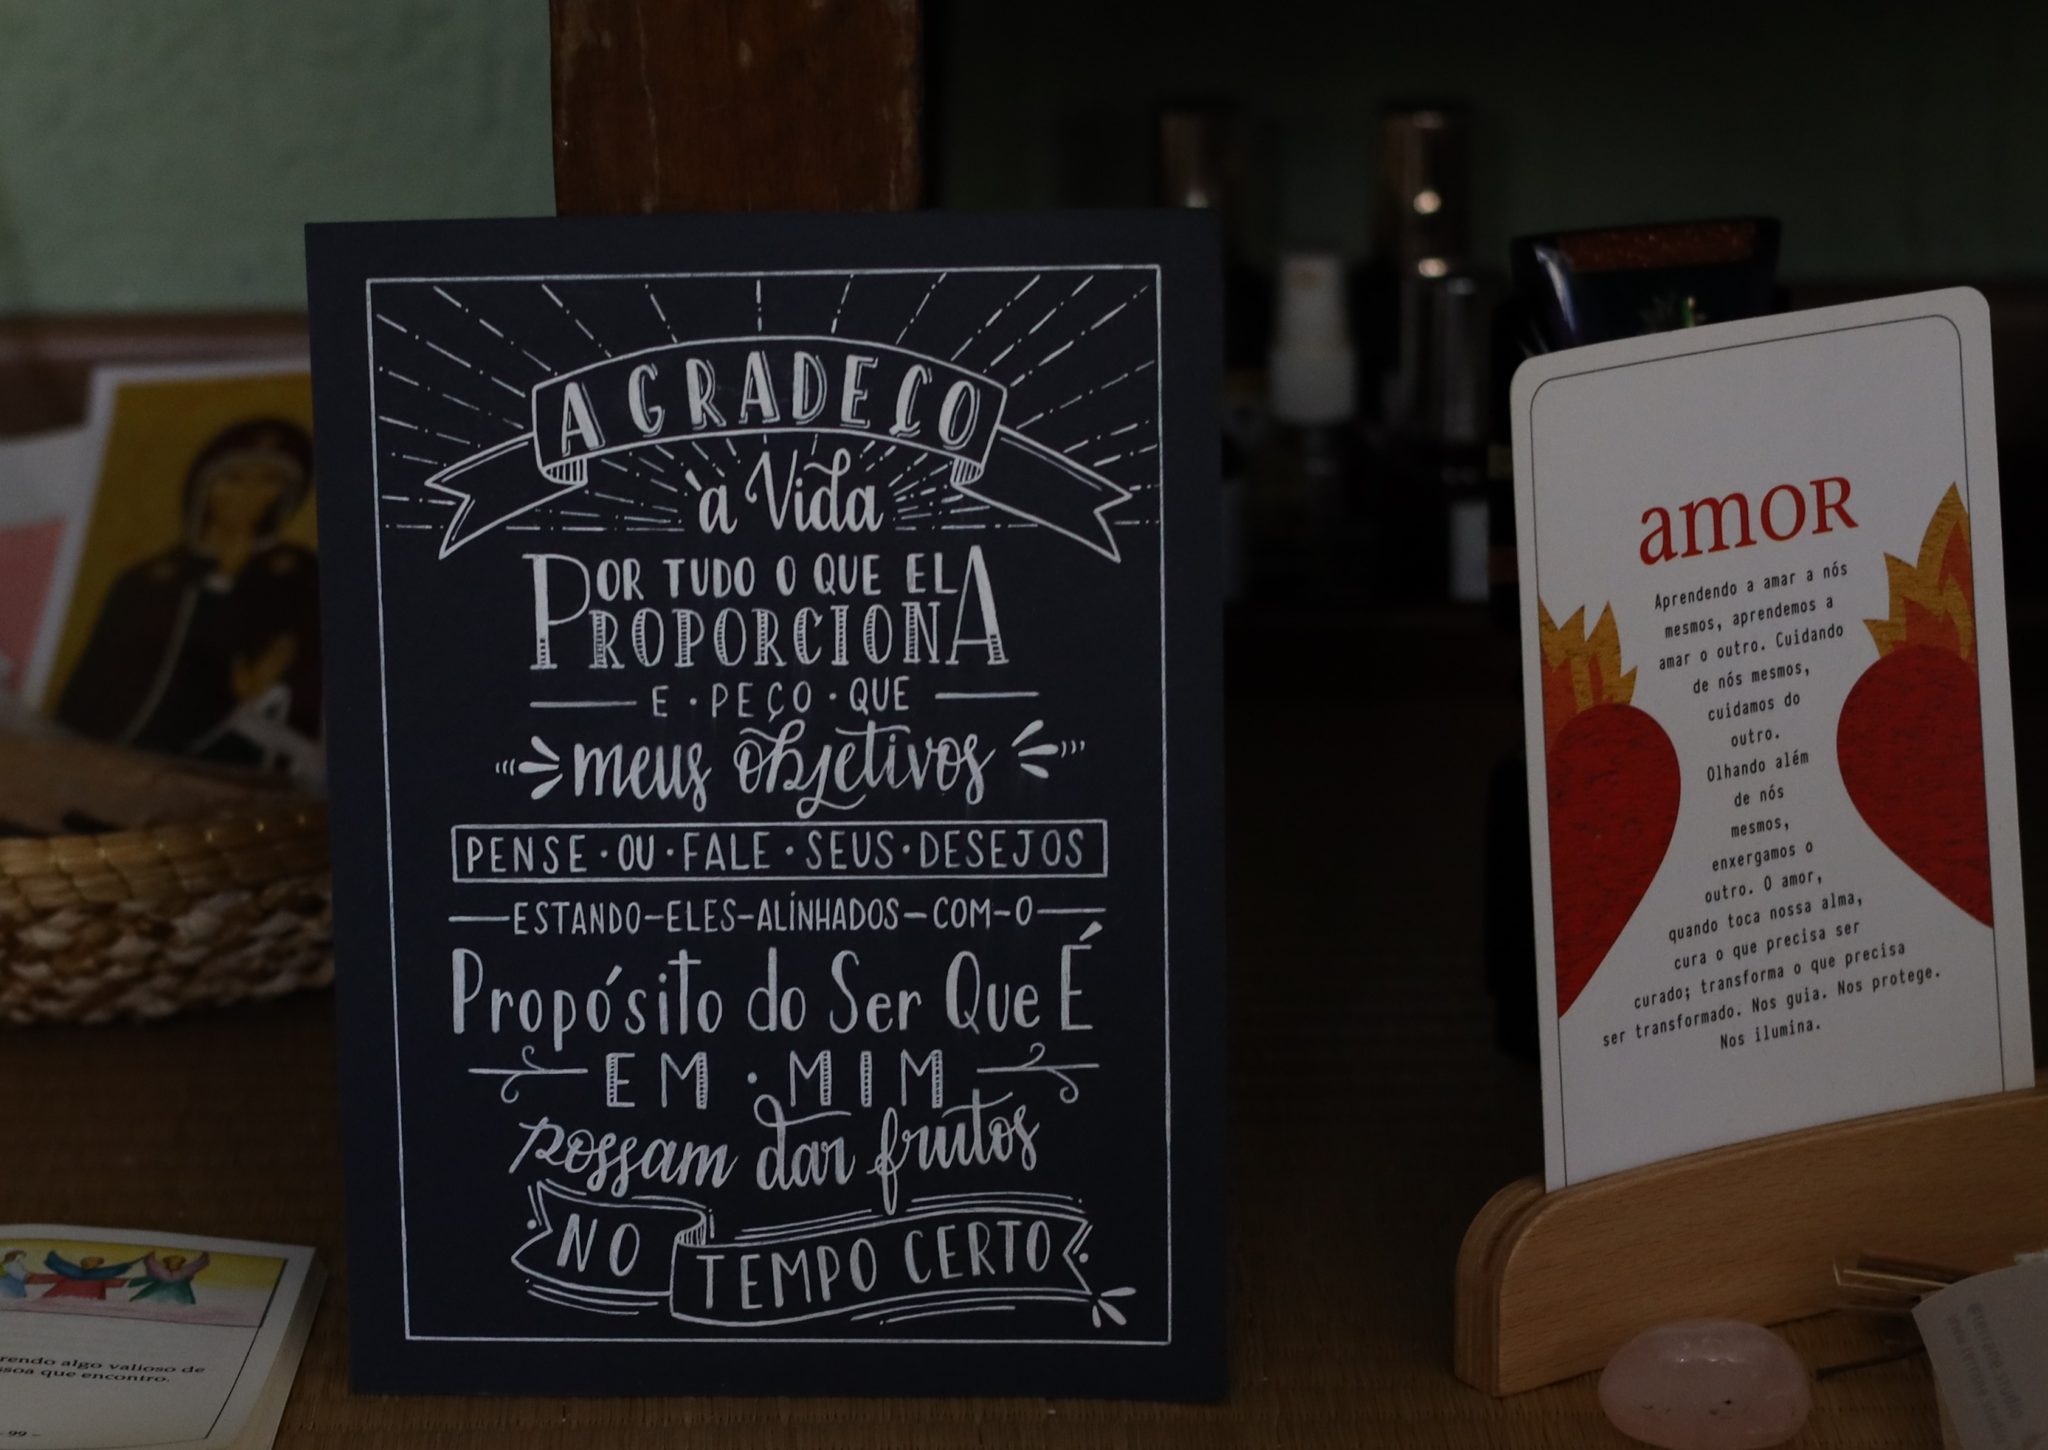 AGRADEÇO
à Vida
POR TUDO O QUE ELA
PROPORCIONA
E · PEÇO · QUE
meus objetivos
PENSE · OU · FALE · SEUS · DESEJOS
ESTANDO-ELES-ALINHADOS-COM-O
Propósito do Ser Que É
EM · MIM
possam dar frutos
NO TEMPO CERTO
amor
Aprendendo a amar a nós
mesmos, aprendemos a
amar o outro. Cuidando
de nós mesmos,
cuidamos do
outro.
Olhando além
de nós
mesmos,
enxergamos o
outro. O amor,
quando toca nossa alma,
cura o que precisa ser
curado; transforma o que precisa
ser transformado. Nos guia. Nos protege.
Nos ilumina.
algo valioso de
que encontro.
99 -